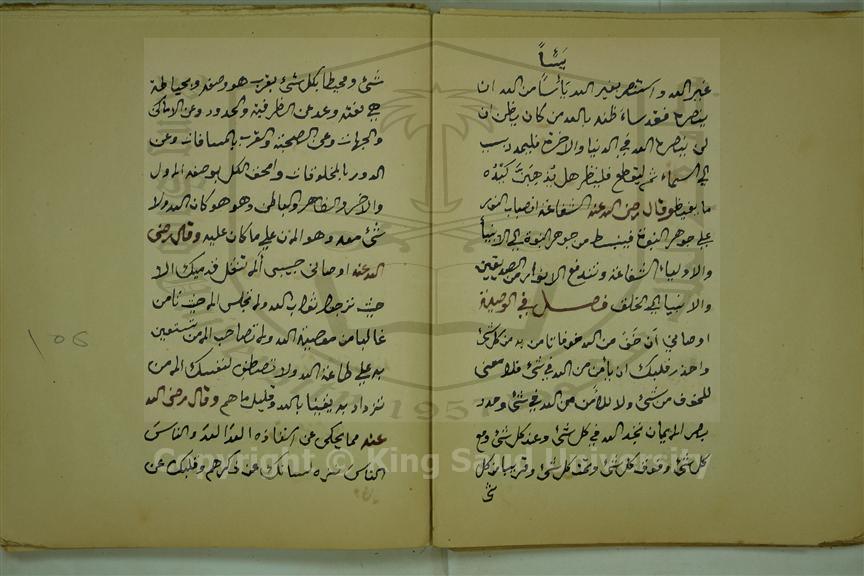 يَئساً
غير الله واستنصر بغير الله يائسا من الله ان
ينصره فقد ساء ظنه بالله من كان يظن ان
لن ينصره الله في الدنيا والاخرة فليمدد بسبب
الي السماء ثم ليقطع فلينظر هل يُذهِبَنَّ كَيْدُه
ما يغيظ وقال رضى الله عنه الشفاعة انصباب النور
علي جوهر النبوة فينبسط من جوهر النبوة الي الانبيا
والاولياء الشفاعة وتندفع الانوار من الصديقين
والانبيا الي الخلق فصل في الوصية
اوصاني ان خَفْ من الله خوفا تامن به من كل شئ
واحذر قلبك ان يأمن من الله في شئ فلا معنى
للخوف من شئ ولا للامن من الله في شئ وحدد
بصر الايمان تجد الله في كل شئ وعند كل شئ ومع
كل شئ وفوق كل شئ وتحت كل شئ وقريبا من كل
شئ
شئ ومحيطا بكل شئ بقرب هو وصفه وبحياطة
هي نعته وعد عن الظرفية والحدود وعن الاماكن
والجهات وعن الصحبة والقرب بالمسافات وعن
الدور بالمخلوقات وامحق الكل بوصفه الاول
والاخر والظاهر والباطن وهو هو هو كان الله ولا
شئ معه وهو الان علي ما كان عليه وقال رضى
الله عنه اوصاني حبيبى ألا تنقل قدميك الا
حيث ترجو ثواب الله ولا تجلس الا حيث تامن
غالبا من معصية الله ولا تصاحب الا من تستعين
به علي طاعة الله ولا تصطف لنفسك الا من
تزداد به يقينا بالله وقليل ما هم وقال رضى الله
عنه مما يحكى عن استاذه اللهَ اللهَ والناسَ
الناسَ نزه لسانك عن ذكرهم وقلبك عن
١٥٦
Copyright © King Saud University
1957